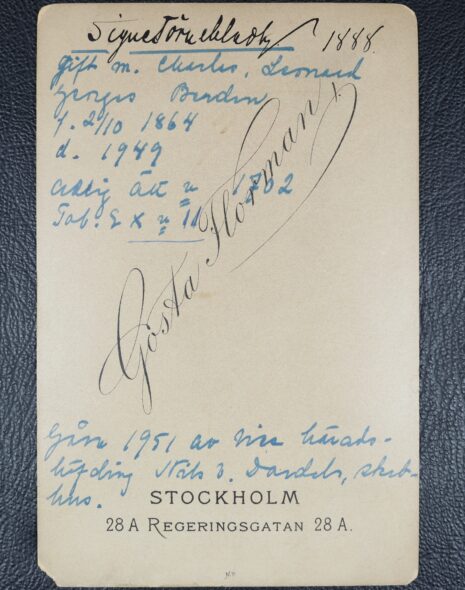 Signe Törnebladh 1888.
gift m. Charles, Leonard
Georges Burdin
f. 2/10 1864
d. 1949
adlig ätt n 1702
Tab. E X n 11
Gösta Florman
Gåva 1951 av vice härads-
höfding Nils 3. Dardel,
hus.
STOCKHOLM
28 A REGERINGSGATAN 28 A.